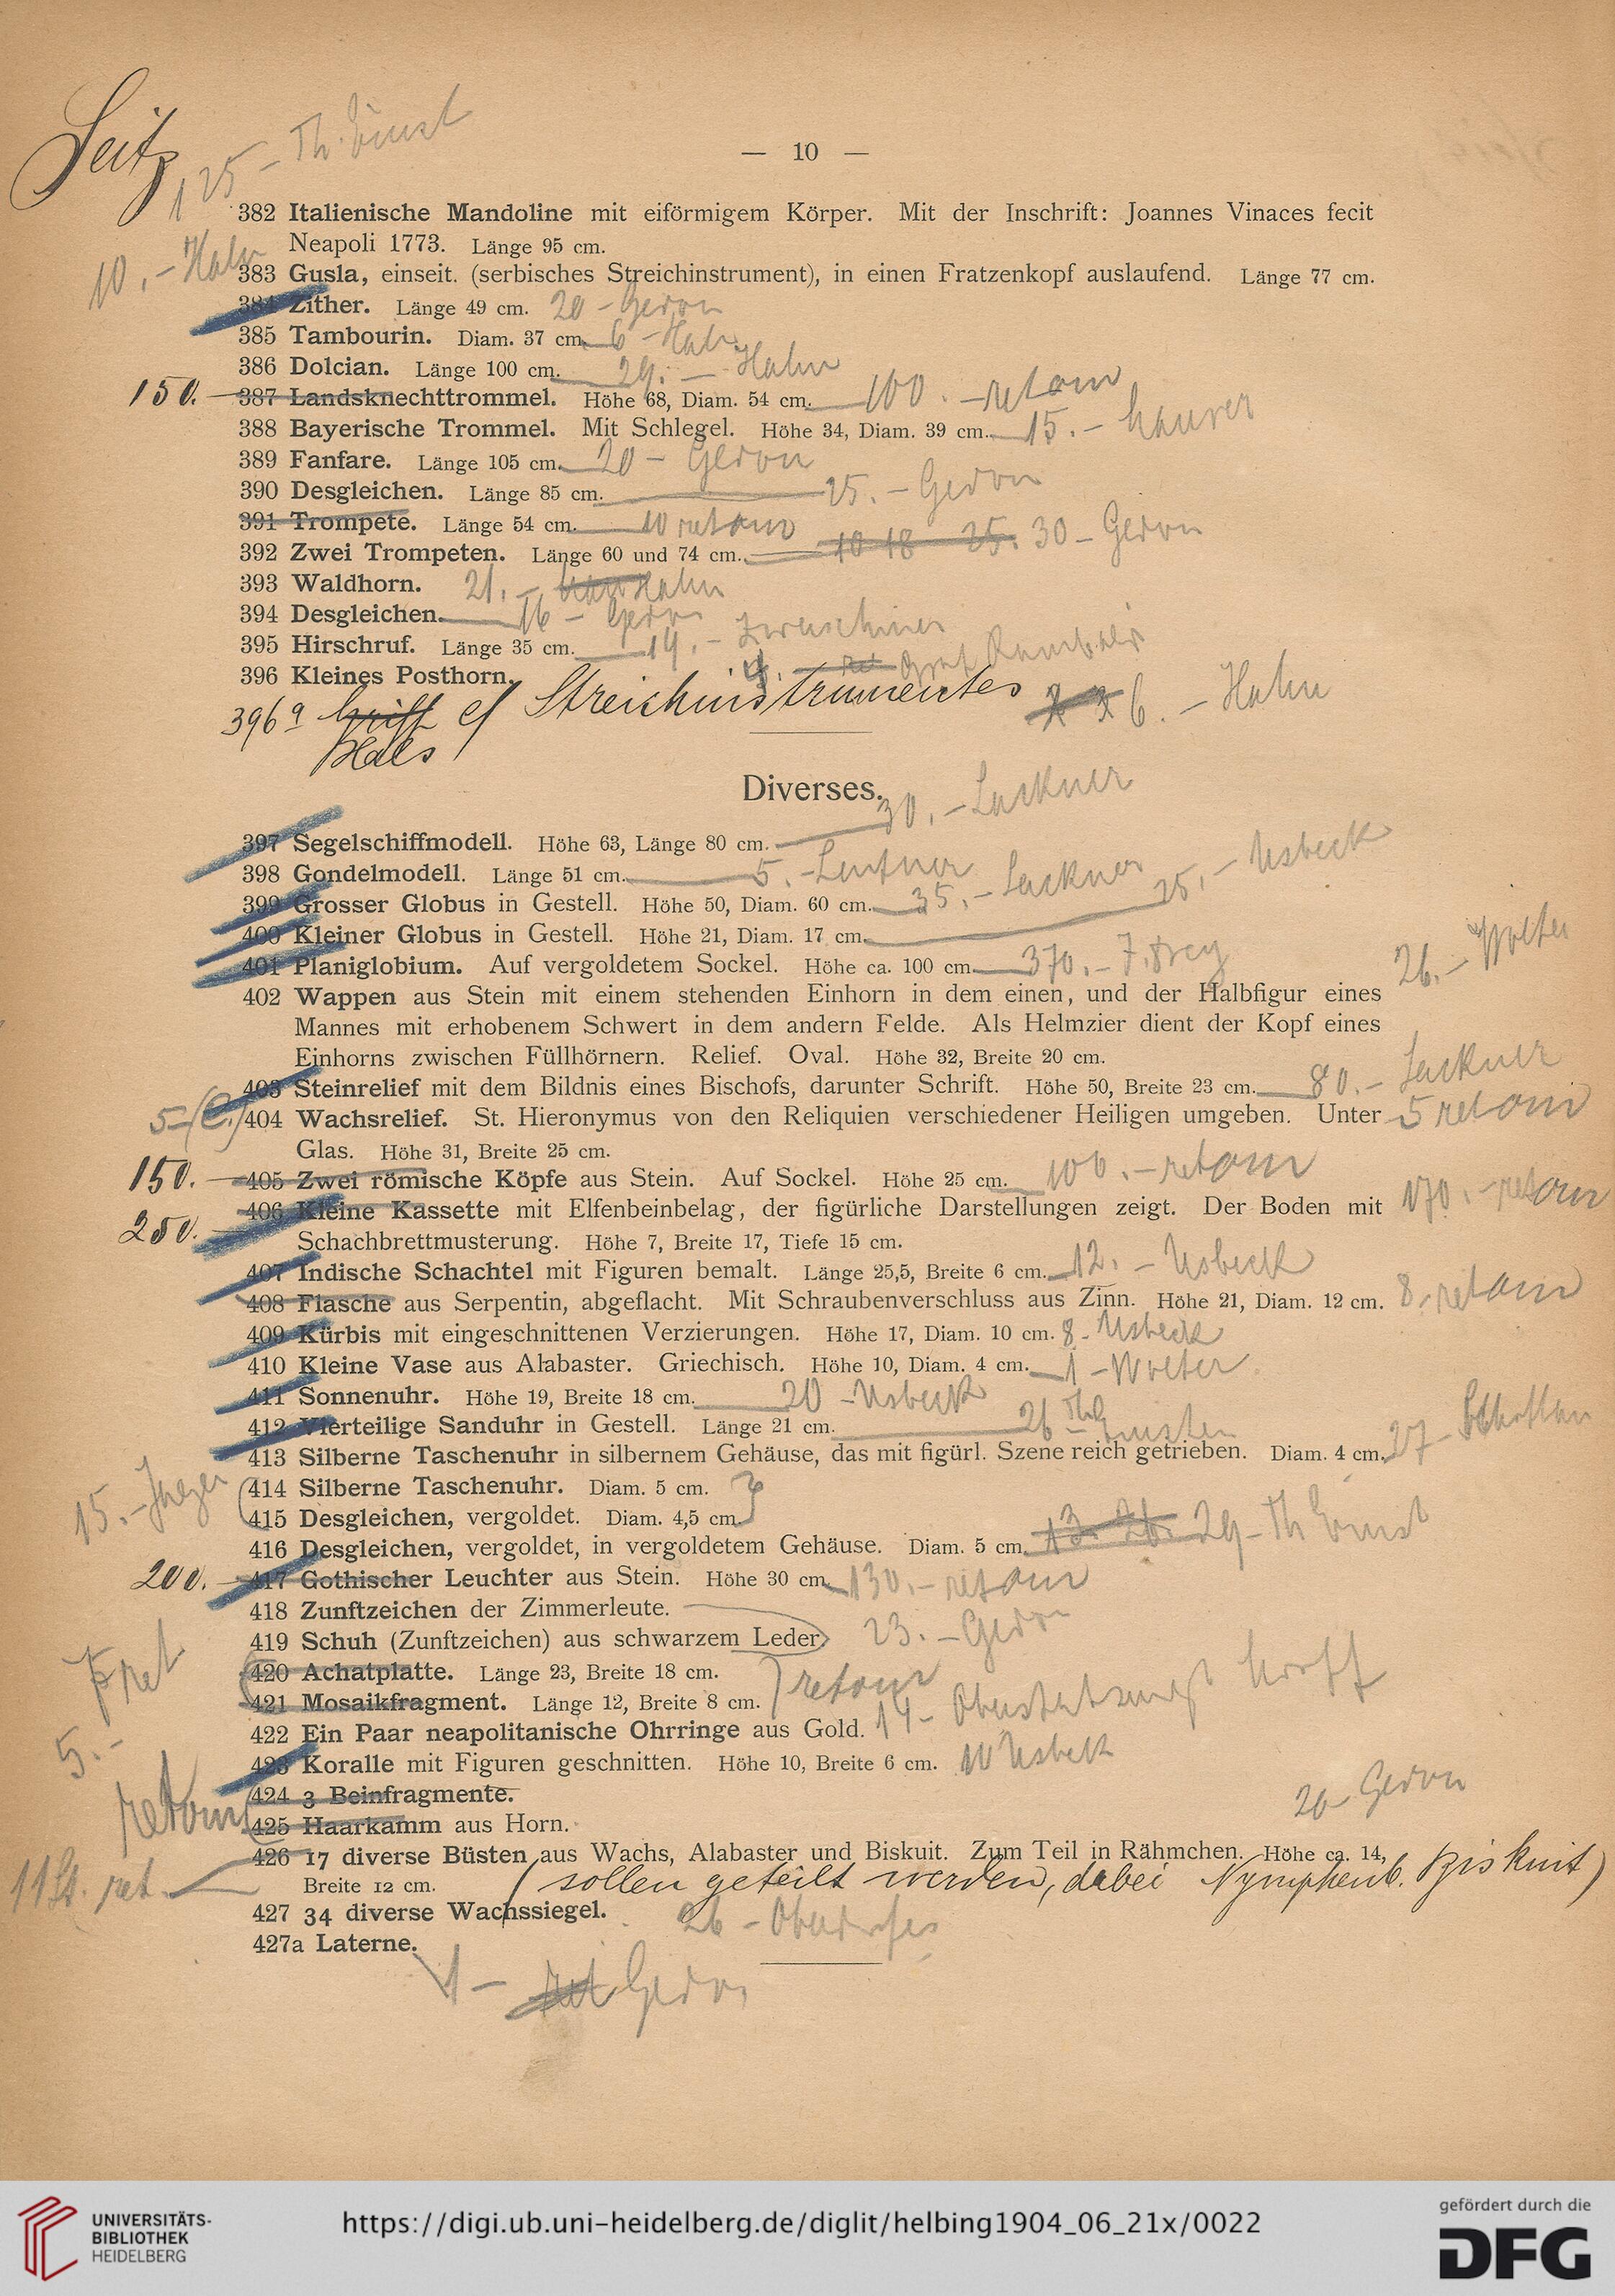 Seitz
125 - Th. Ernst
— 10 —
382 Italienische Mandoline mit eiförmigem Körper. Mit der Inschrift: Joannes Vinaces fecit
Neapoli 1773. Länge 95 cm.
10.- Hahn
383 Gusla, einseit. (serbisches Streichinstrument), in einen Fratzenkopf auslaufend. Länge 77 cm.
384 Zither. Länge 49 cm. 20 - Gedon
385 Tambourin. Diam. 37 cm. 6 - Hahn
386 Dolcian. Länge 100 cm. 29.- Hahn
150. 387 Landsknechttrommel. Höhe 68, Diam. 54 cm. 100.- retour
388 Bayerische Trommel. Mit Schlegel. Höhe 34, Diam. 39 cm. 15.-
389 Fanfare. Länge 105 cm. 20 - Gedon
390 Desgleichen. Länge 85 cm. 25.- Gedon
391 Trompete. Länge 54 cm. 10 retour
392 Zwei Trompeten. Länge 60 und 74 cm. 10 18 25. 30 - Gedon
393 Waldhorn. 21.- Hahn
394 Desgleichen. 16 - Gedon
395 Hirschruf. Länge 35 cm. 14.-
396 Kleines Posthorn. 4. Graf
396a Griff e/ Streichinstrumentes 6.- Hahn
Hals
Diverses.
397 Segelschiffmodell. Höhe 63, Länge 80 cm. 30.- Lackner
398 Gondelmodell. Länge 51 cm. 5.- Lentner
399 Grosser Globus in Gestell. Höhe 50, Diam. 60 cm. 35.- Lackner
400 Kleiner Globus in Gestell. Höhe 21, Diam. 17 cm. 25.- Usbeck
401 Planiglobium. Auf vergoldetem Sockel. Höhe ca. 100 cm. 370.- F. Frey
26.- Wolter
402 Wappen aus Stein mit einem stehenden Einhorn in dem einen, und der Halbfigur eines
Mannes mit erhobenem Schwert in dem andern Felde. Als Helmzier dient der Kopf eines
Einhorns zwischen Füllhörnern. Relief. Oval. Höhe 32, Breite 20 cm.
403 Steinrelief mit dem Bildnis eines Bischofs, darunter Schrift. Höhe 50, Breite 23 cm. 80.- Lackner
5- 404 Wachsrelief. St. Hieronymus von den Reliquien verschiedener Heiligen umgeben. Unter 5 retour
Glas. Höhe 31, Breite 25 cm.
150. 405 Zwei römische Köpfe aus Stein. Auf Sockel. Höhe 25 cm. 100.- retour
406 Kleine Kassette mit Elfenbeinbelag, der figürliche Darstellungen zeigt. Der Boden mit 170.- retour
250. Schachbrettmusterung. Höhe 7, Breite 17, Tiefe 15 cm.
407 Indische Schachtel mit Figuren bemalt. Länge 25,5, Breite 6 cm. 12.- Usbeck
408 Flasche aus Serpentin, abgeflacht. Mit Schraubenverschluss aus Zinn. Höhe 21, Diam. 12 cm. 8.- retour
409 Kürbis mit eingeschnittenen Verzierungen. Höhe 17, Diam. 10 cm. 8.- Usbeck
410 Kleine Vase aus Alabaster. Griechisch. Höhe 10, Diam. 4 cm. 1 - Wolter
411 Sonnenuhr. Höhe 19, Breite 18 cm. 20 - Usbeck
412 Vierteilige Sanduhr in Gestell. Länge 21 cm. 26 -
413 Silberne Taschenuhr in silbernem Gehäuse, das mit figürl. Szene reich getrieben. Diam. 4 cm. 27 -
15.-
414 Silberne Taschenuhr. Diam. 5 cm.
415 Desgleichen, vergoldet. Diam. 4,5 cm.
416 Desgleichen, vergoldet, in vergoldetem Gehäuse. Diam. 5 cm. 13. 26. 29 - Th Ernst
200. 417 Gothischer Leuchter aus Stein. Höhe 30 cm. 130.- retour
418 Zunftzeichen der Zimmerleute.
419 Schuh (Zunftzeichen) aus schwarzem Leder. 23.- Gedon
420 Achatplatte. Länge 23, Breite 18 cm.
421 Mosaikfragment. Länge 12, Breite 8 cm. retour
422 Ein Paar neapolitanische Ohrringe aus Gold. 14 -
5.-
423 Koralle mit Figuren geschnitten. Höhe 10, Breite 6 cm. 10 Usbeck
424 3 Beinfragmente.
retour
425 Haarkamm aus Horn.
20 - Gedon
426 17 diverse Büsten aus Wachs, Alabaster und Biskuit. Zum Teil in Rähmchen. Höhe ca. 14,
11 St. ret. Breite 12 cm. (sollen geteilt werden, dabei Nymphenb. Biskuit)
427 34 diverse Wachssiegel. 26 -
427a Laterne.
1 - ret Gedon
UNIVERSITÄTS-
BIBLIOTHEK
HEIDELBERG
https://digi.ub.uni-heidelberg.de/diglit/helbing1904_06_21x/0022
gefördert durch die
DFG